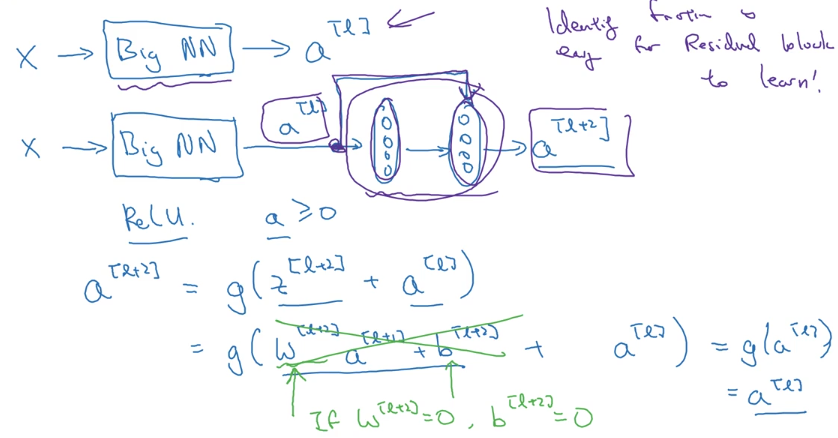 X → Big NN → a^[l]
Identity function is
easy for Residual block
to learn!
X → Big NN a^[l] → → a^[l+2]
ReLU. a ≥ 0
a^[l+2] = g(z^[l+2] + a^[l])
= g(W^[l+2] a^[l+1] + b^[l+2] + a^[l]) = g(a^[l])
= a^[l]
If W^[l+2]=0, b^[l+2]=0